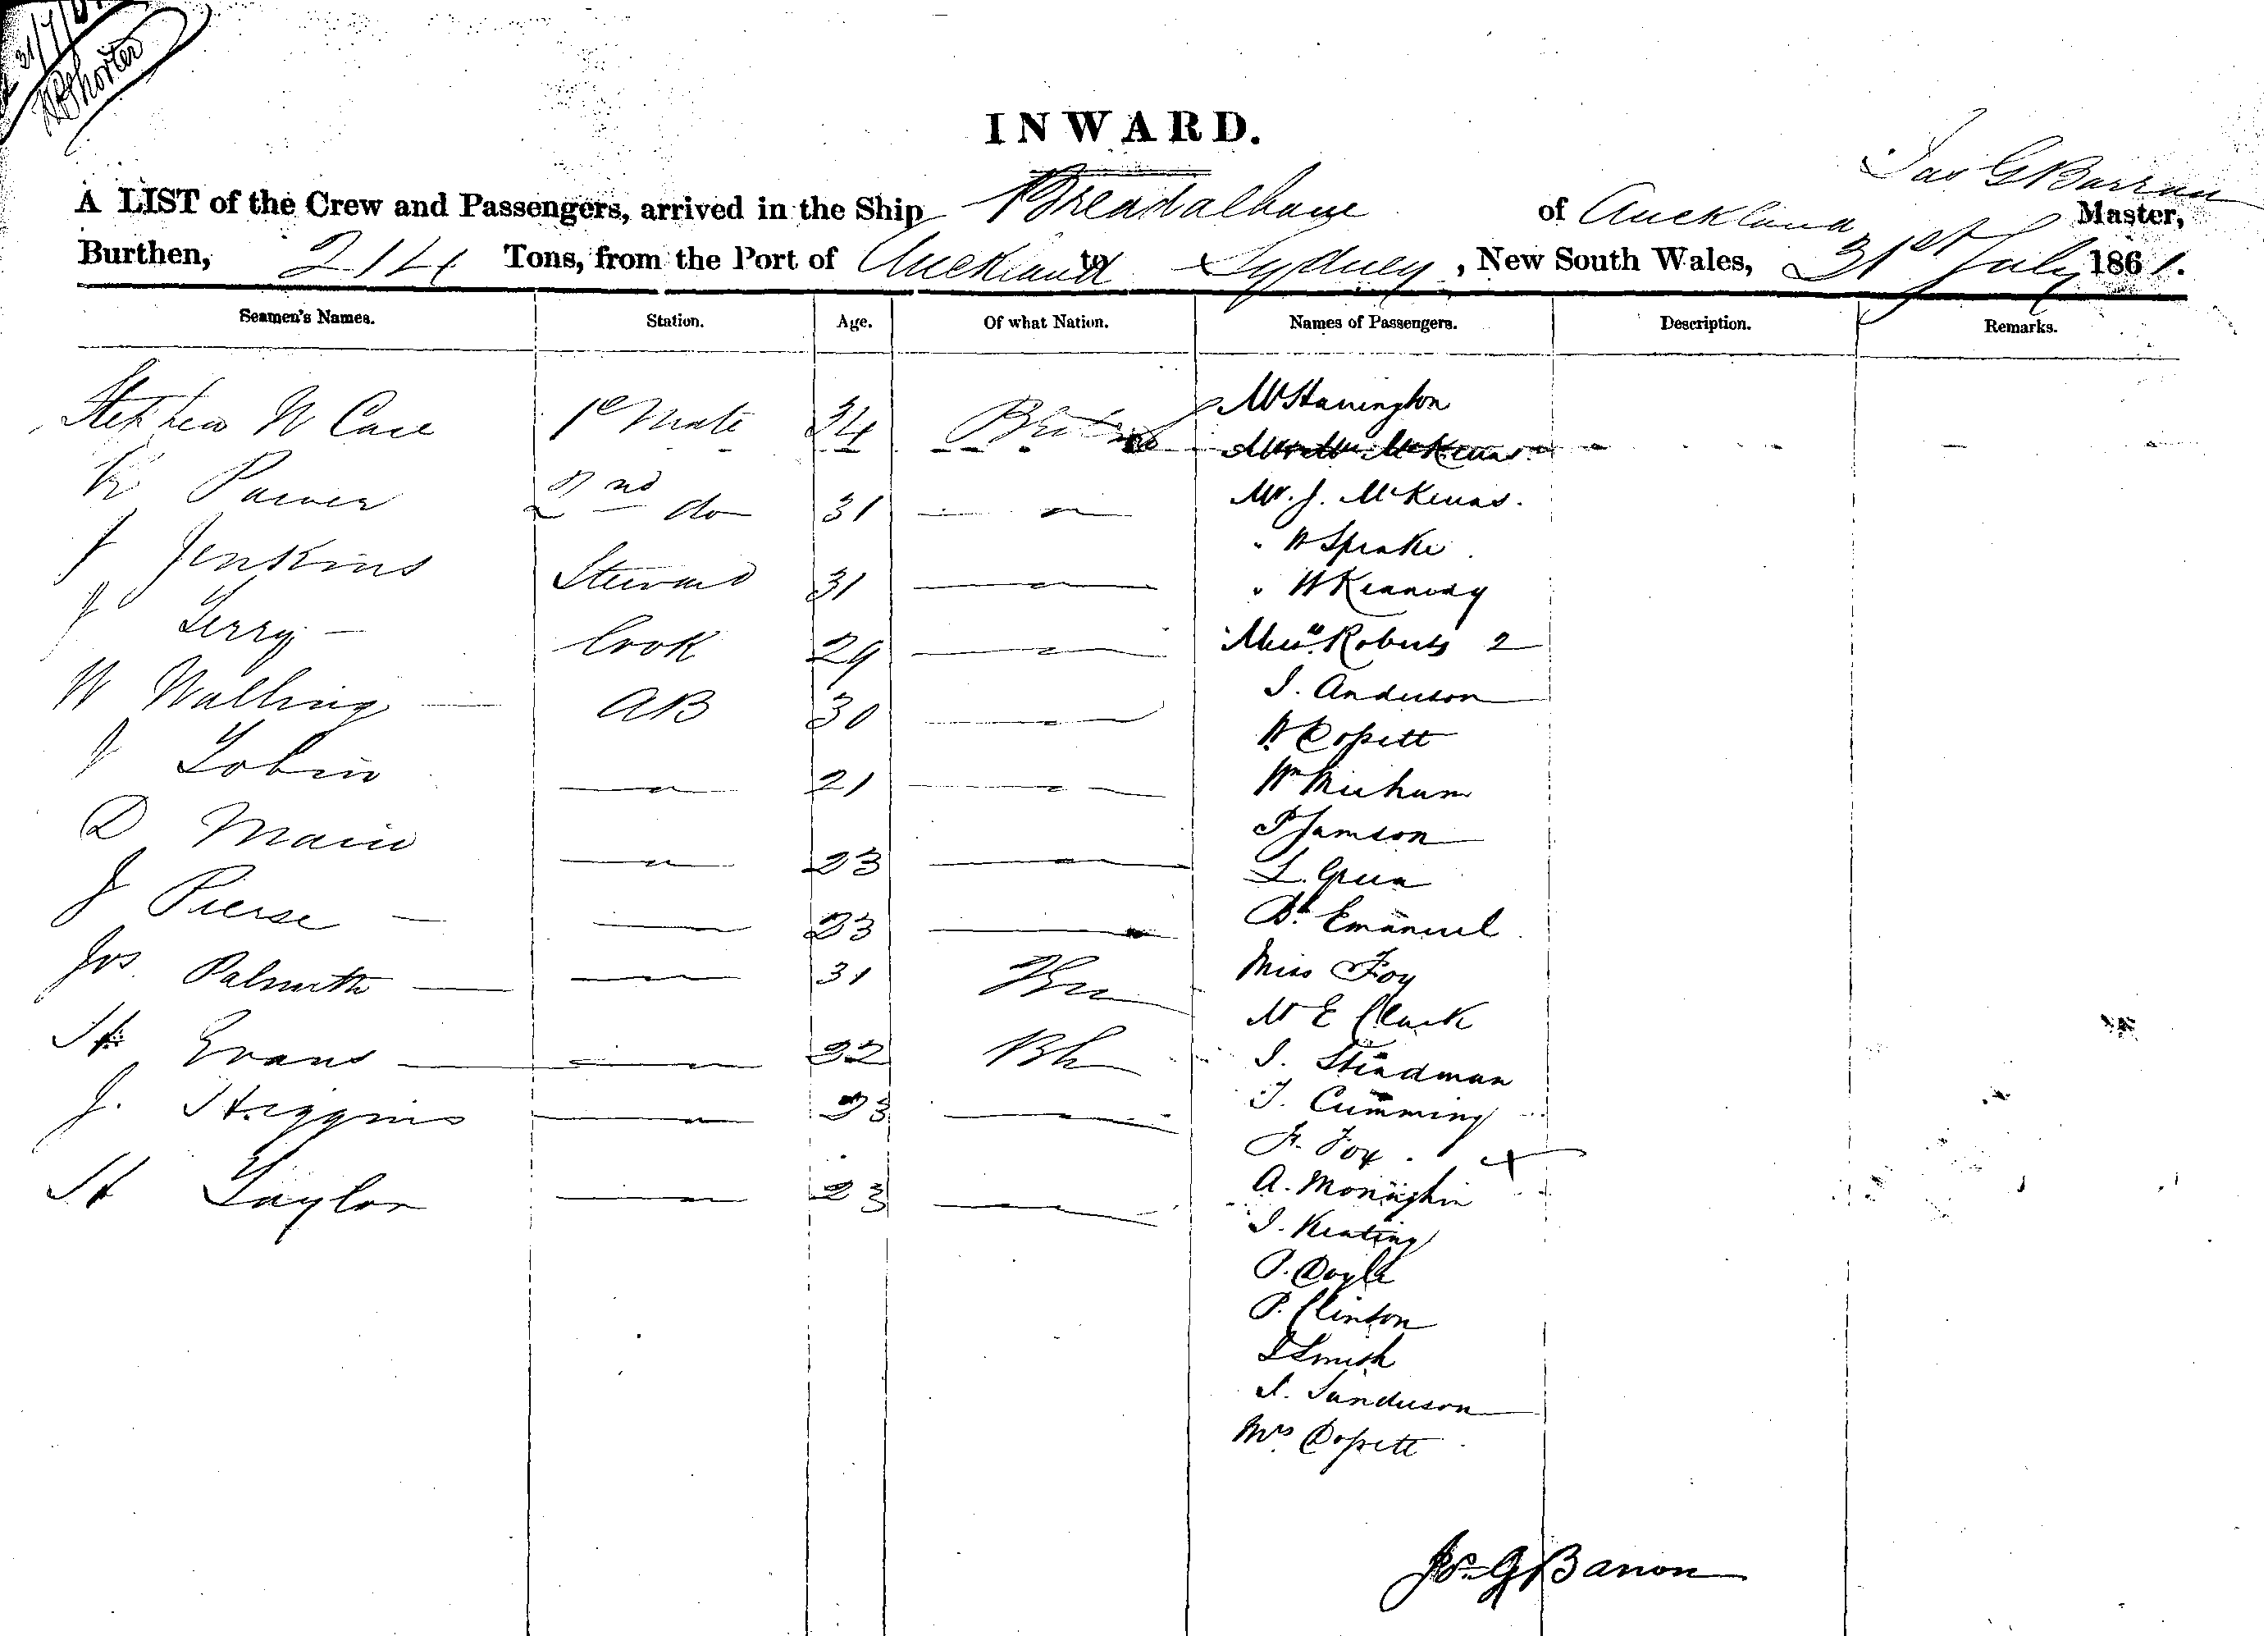 31/7/61
Shorter
INWARD.
Jas G Barron
A LIST of the Crew and Passengers, arrived in the Ship Breadalbane of Auckland Master,
Burthen, 214 Tons, from the Port of Auckland to Sydney, New South Wales, 31st July 1861.
Seamen's Names. Station. Age. Of what Nation. Names of Passengers. Description. Remarks.
Stephen W Case 1e Mate 34 British Mr Harrington
Mr J. McKenas.
Power 2nd do 31 " " W Sprake
J Jenkins Steward 31 " " W Kennedy
J Terry Cook 29 " Roberts 2
W Walling AB 30 " J. Anderson
J Tobin " 21 " W Dossett
Wm Meicham
D Main " 23 P Jamson
L. Green
J Pierse 23 Emanuel
Jos Palmeth 31 Miss Foy
M E Clark
H Evans 32 Bh J. Steadman
J. Higgins " 23 J. Cumming
F. Fox
H Taylor " 23 A. Monaghin
J. Keating
P. Doyle
P. Clinton
J Smith
J. Sanderson
Mrs Dossett
Jas G Barron